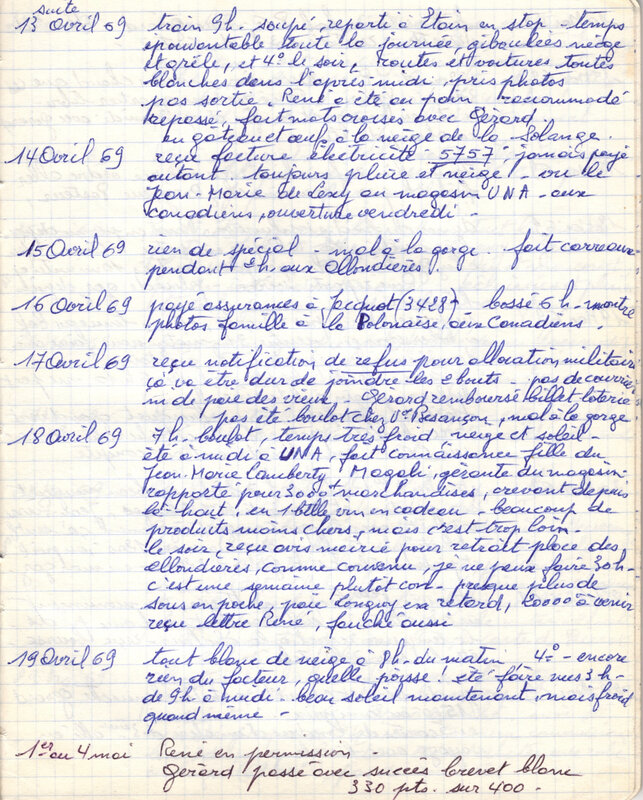 suite
13 Avril 69 train 9h. soupé, reparti à Etain en stop - temps
épouvantable toute la journée, giboulées neige
et grêle, et 4° le soir, routes et voitures toutes
blanches dans l'après midi, pris photos
pas sortie, René a été au pain - raccommodé
repassé, fait mots croisés avec Gérard.
eu gâteau et œuf à la neige de la Solange.
14 Avril 69 reçu facture électricité 5757, jamais payé
autant. toujours pluie et neige - vu le
Jean-Marie de Lexy au magasin UNA - aux
Canadiens, ouverture vendredi -
15 Avril 69 rien de spécial - mal à la gorge. fait carreaux
pendant 2h. aux Ollondières.
16 Avril 69 payé assurances à Jacquot (3428) bossé 6h - montré
photos famille à la Polonaise, aux Canadiens.
17 Avril 69 reçu notification de refus pour allocation militaire
ça va être dur de joindre les 2 bouts - pas de courrier
ni de paie des vieux. Gérard remboursé billet loterie
pas été boulot chez Besançon, mal à la gorge
18 Avril 69 7h. boulot, temps très froid, neige et soleil -
été à midi à UNA, fait connaissance fille du
Jean-Marie Lamberty, Magali, gérante du magasin
rapporté pour 3000 marchandises, crevant depuis
là-haut, eu 1 bille vin en cadeau - beaucoup de
produits moins chers, mais c'est trop loin -
le soir, reçu avis mairie pour retrait place des
Ollondières, comme convenu, je ne peux faire 30h -
c'est une semaine plutôt con - presque plus de
sous en poche, paie Longwy en retard, 20000 à venir
reçu lettre René, fauché aussi
19 Avril 69 tout blanc de neige à 8h. du matin 4° - encore
rien du facteur, quelle poisse! été faire 3h -
de 9h à midi - beau soleil maintenant, mais froid
quand même -
1er au 4 mai René en permission -
Gérard passé avec succès brevet blanc
330 pts. sur 400 -